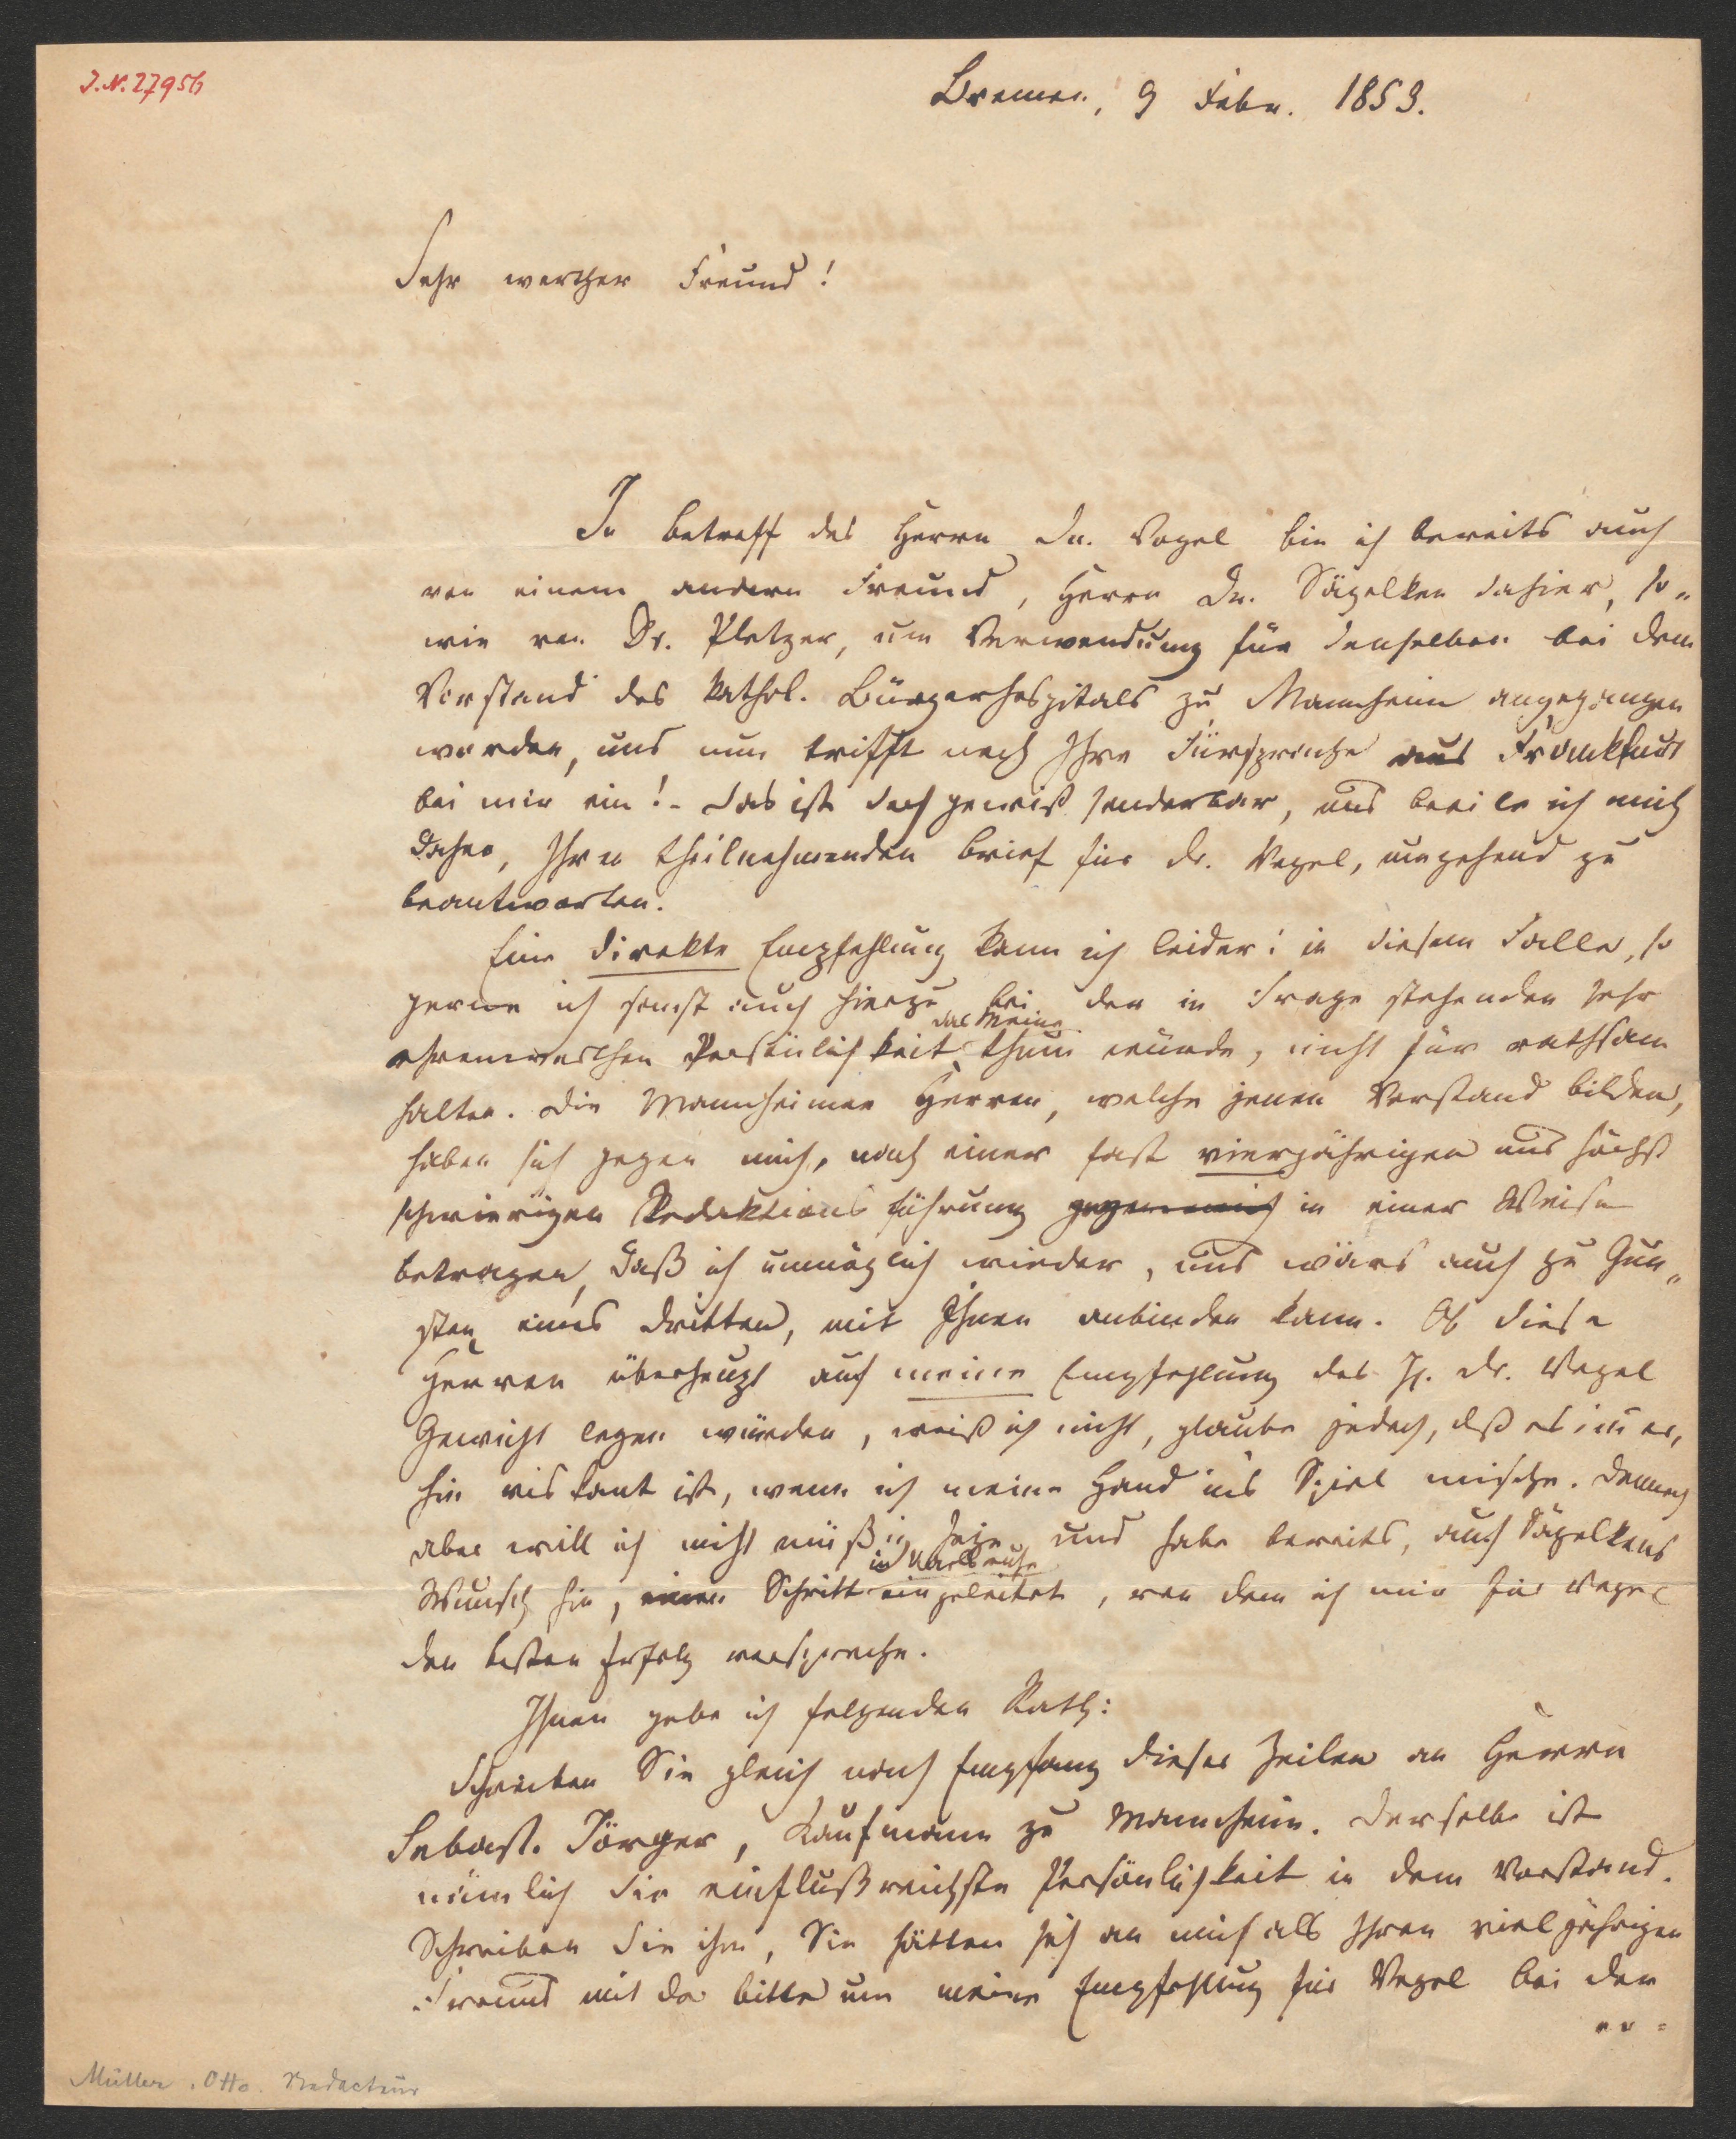 J.N. 27956
Bremen, 9 Febr. 1853.
Sehr werther Freund!
In betreff des Herrn Dr. Vogel bin ich bereits auch
von einem andern Freund, Herrn Dr. Sägelken dahier, so-
wie von Dr. Pletzer, um Verwendung für denselben bei dem
Vorstand des kathol. Bürgerhospitals zu Mannheim angegangen
worden, und nun trifft noch Ihre Fürsprache aus Frankfurt
bei mir ein! - Das ist doch gewiß sonderbar, und beeile ich mich
daher, Ihren theilnehmenden Brief für Dr. Vogel, umgehend zu
beantworten.
Eine direkte Empfehlung kann ich leider! in diesem Falle, so
gerne ich sonst auch hierzu bei der in Frage stehenden sehr
das Meine
ehrenwerthen Persönlichkeit thun würde, nicht für rathsam
halten. Die Mannheimer Herren, welche jenen Vorstand bilden,
haben sich gegen mich, nach einer fast vierjährigen und höchst
schwierigen Redaktionsführung gegen mich in einer Weise
betragen, daß ich unmöglich wieder, und wärs auch zu Gun-
sten eines Dritten, mit Ihnen anbinden kann. Ob diese
Herren überhaupt auf meine Empfehlung des H. Dr. Vogel
Gewicht legen würden, weiß ich nicht, glaube jedoch, daß es immer,
hin riskant ist, wenn ich meine Hand ins Spiel mische. Dennoch
aber will ich nicht müßig sein und habe bereits, auf Sägelkens
in Karlsruhe
Wunsch hin, einen Schritt eingeleitet, von dem ich mir für Vogel
den besten Erfolg verspreche.
Ihnen gebe ich folgenden Rath:
Schreiben Sie gleich nach Empfang dieser Zeilen an Herrn
Sebast. Jörger, Kaufmann zu Mannheim. Derselbe ist
nämlich die einflußreichste Persönlichkeit in dem Vorstand.
Schreiben Sie ihm, Sie hätten sich an mich als Ihren vieljährigen
Freund mit der Bitte um meine Empfehlung für Vogel bei den
Müller, Otto. Redacteur